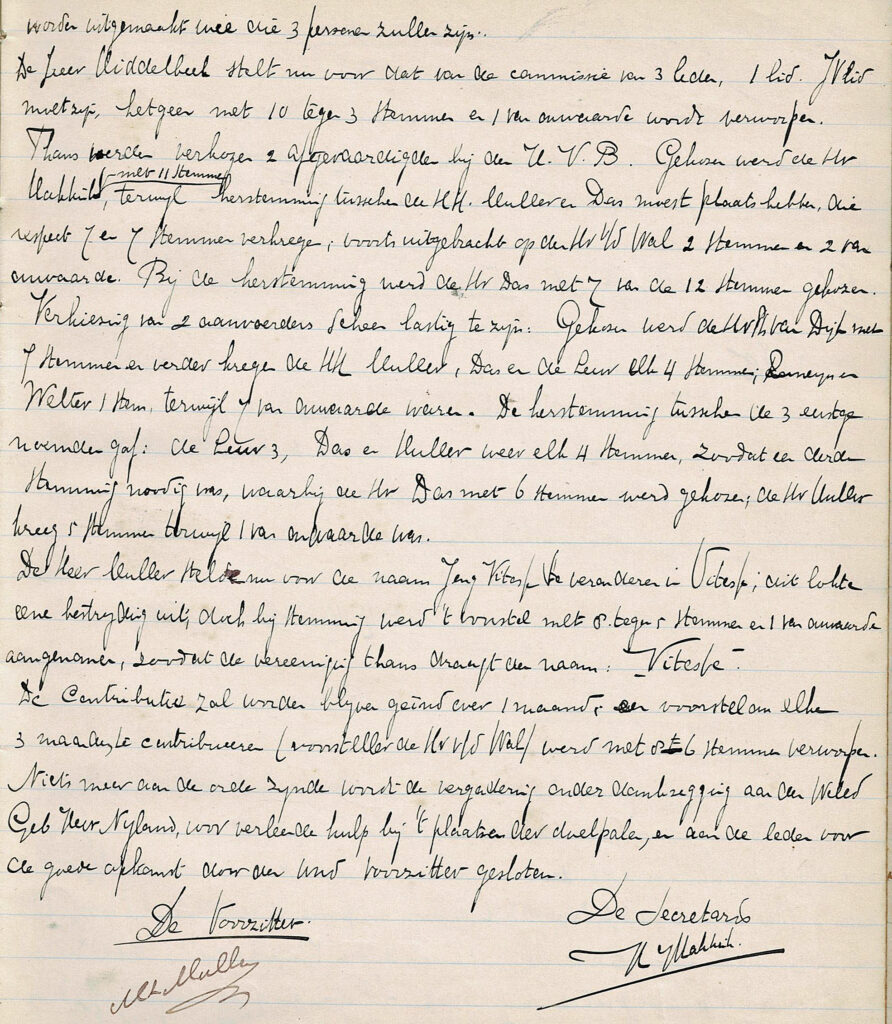 worden uitgemaakt wie die 3 personen zullen zijn.
De heer Middelbeek stelt nu voor dat van de commissie van 3 leden, 1 lid
moet zijn, hetgeen met 10 tegen 3 stemmen en 1 van onwaarde wordt verworpen.
Thans werden verkozen 2 afgevaardigden bij den N. V. B. Gekozen werd de Hr
met 11 stemmen
Makkink, terwijl herstemming tusschen de HH. Muller en Das moest plaats hebben, die
respect 7 en 7 stemmen verkregen; voorts uitgebracht op den Hr v/d Wal 2 stemmen en 2 van
onwaarde. Bij de herstemming werd de Hr Das met 7 van de 12 stemmen gekozen.
Verkiezing van 2 aanvoerders scheen lastig te zijn: Gekozen werd de Hr van Dijk met
7 stemmen en verder kregen de HH Muller, Das en de Leur elk 4 stemmen; en
Welter 1 stem, terwijl 7 van onwaarde waren. De herstemming tusschen de 3 eerstge
noemden gaf: de Leur 3, Das en Muller weer elk 4 stemmen, zoodat een derde
stemming noodig was, waarbij de Hr Das met 6 stemmen werd gekozen; de Hr Muller
kreeg 5 stemmen terwijl 1 van onwaarde was.
De Heer Muller stelde nu voor de naam Jeng Vitesse te veranderen in Vitesse; dit lokte
eene bestrijding uit, doch bij stemming werd 't voorstel met 8 tegen 5 stemmen en 1 van onwaarde
aangenomen, zoodat de vereeniging thans draagt den naam: "Vitesse".
De Contributie zal worden blijven geïnd over 1 maand; een voorstel om elke
3 maanden te contribueeren (voorsteller de Hr v/d Wal) werd met 8 t 6 stemmen verworpen.
Niets meer aan de orde zynde wordt de vergadering onder dankzegging aan den WelEd
Geb Heer Nyland, voor verleende hulp bij 't plaatsen der doelpalen, en aan de leden voor
de goede opkomst door den voorzitter gesloten.
De Voorzitter.
De Secretaris
Muller
Makkink.